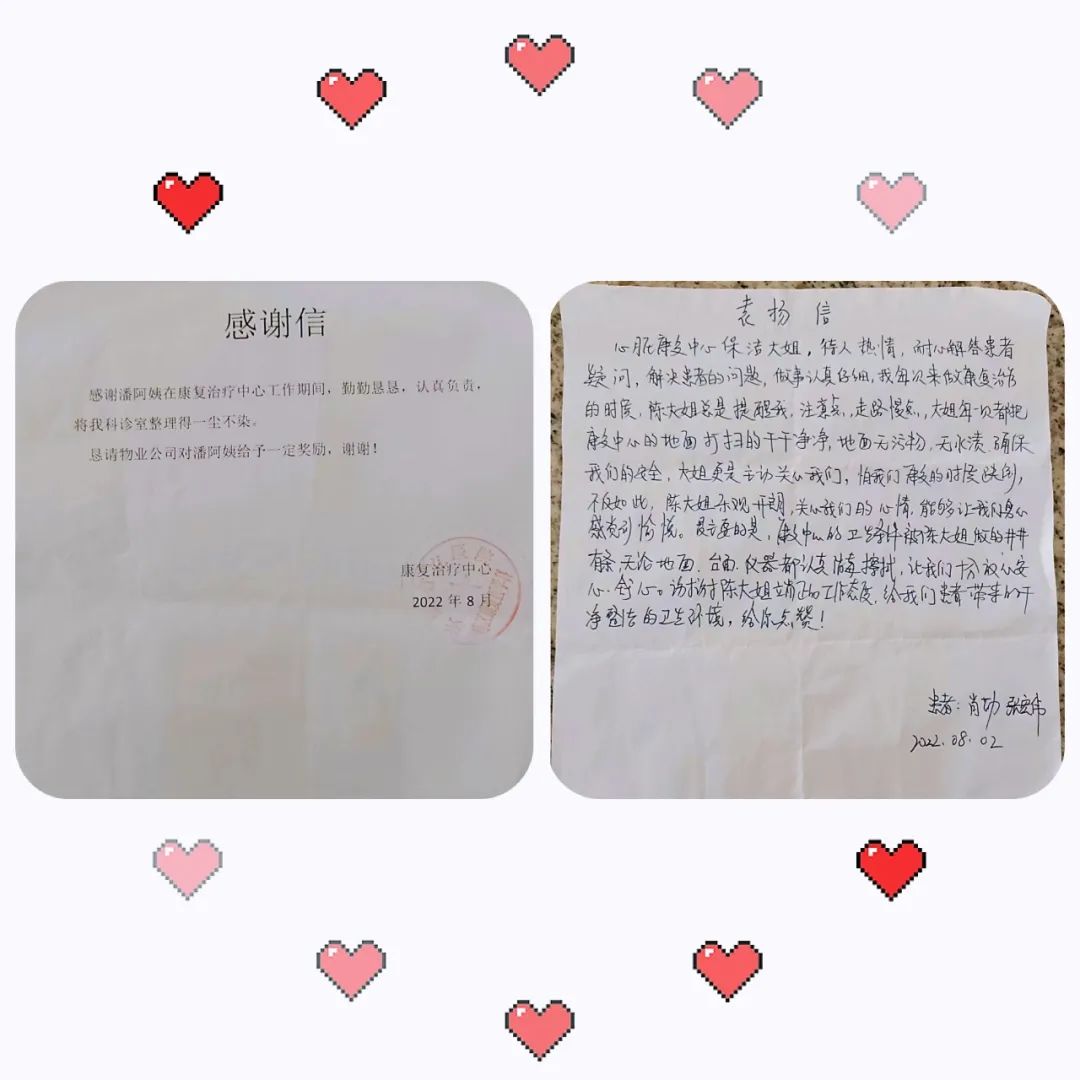 感谢信
感谢潘阿姨在康复治疗中心工作期间，勤勤恳恳，认真负责，
将我科诊室整理得一尘不染。
恳请物业公司对潘阿姨给予一定奖励，谢谢！
康复治疗中心
2022 年 8 月
表扬信
心脏康复中心保洁大姐，待人热情，耐心解答患者
疑问，解决患者的问题，做事认真仔细，我每次来做康复治疗
的时候，陈大姐总是提醒我，注意点，走路慢点，大姐每一次都把
康复中心的地面打扫的干干净净，地面无污物，无水渍，确保
我们的安全，大姐更是主动关心我们，怕我们康复的时候
不仅如此，陈大姐乐观开朗，关心我们的心情，能够让我们身心
感觉到愉悦。最主要的是，康复中心的卫生条件被陈大姐做的井井
有条，无论地面、台面、仪器都认真消毒擦拭，让我们十分放心安
心、舒心。谢谢陈大姐端正的工作态度，给我们患者带来的干
净整洁的卫生环境，给你点赞！
患者：肖
2022.08.02